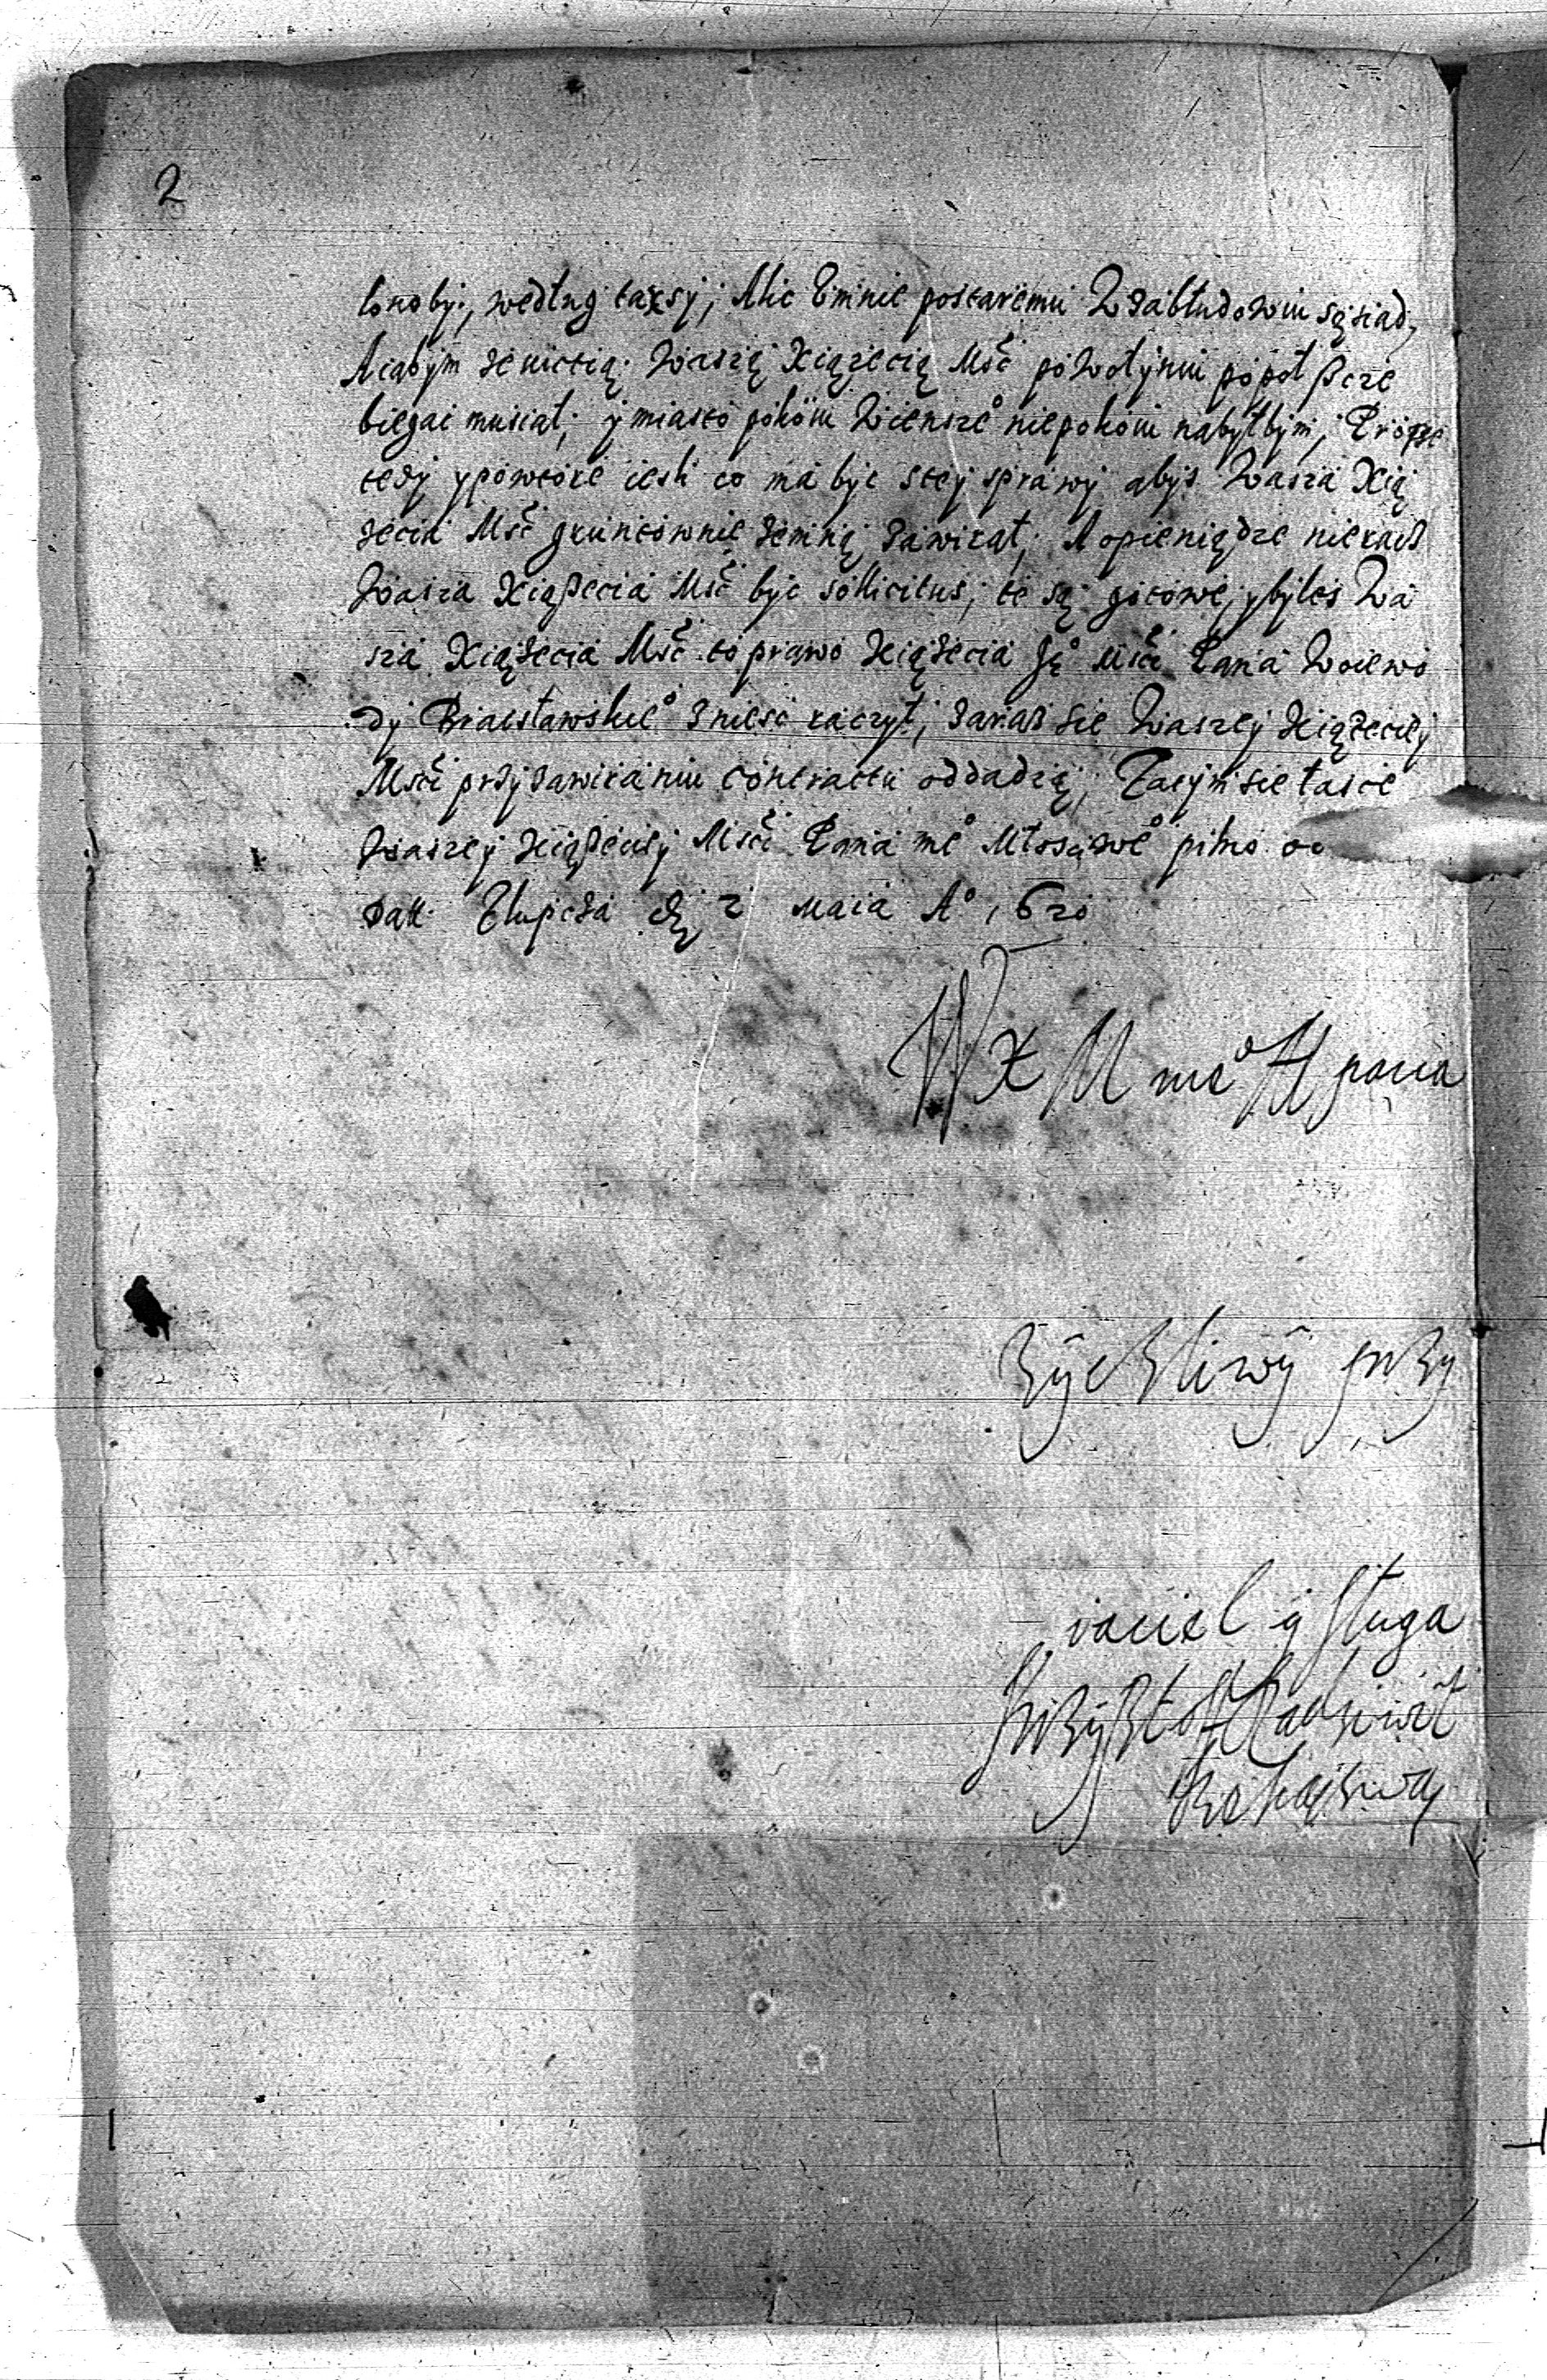 2
lonoby, według taxsy; Alic Eminie postaremu W Zabłudowiu sąsiad,
A iabym ze wictią Waszą Xiązecią Mśc po Wołyniu popołszcze
biegac musiał; y miasto pokoiu Wiensze° niepokoiu nabyłbym; Prosze
tedy y powtore iesli co ma byc stey sprawy abys Wasza Xią
zecia Mśc gruntownie zemną zawirał; A opieniądze nieracz
Wasza Xiązecia Mśc byc sollicitus; te są gotowe, ybyles Wa
sza Xiązecia Mśc to prawo Xiązecia Je° Mści Pana Woiewo
dy Braclawskie° zniesc raczył; zaraz sie Waszey Xiązecey
Mści przyzawiraniu contractu oddadzą; Zatym sie łasce
Waszey Xiązecey Mści Pana me° Młosciwe° pilno od
Datt. Słupcza dj 2 Maia A° 1620
W X M me° M pana
Zyczliwy przy
iaciel y sługa
Krzysztoff Radziwił